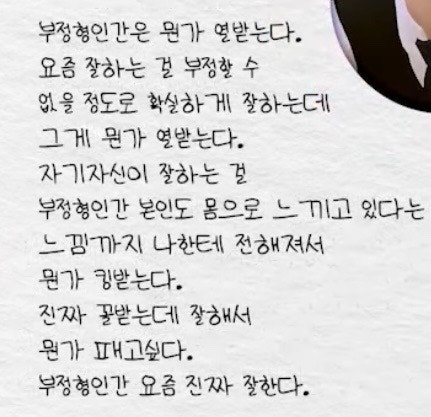 부정형인간은 뭔가 열받는다.
요즘 잘하는 걸 부정할 수
없을 정도로 확실하게 잘하는데
그게 뭔가 열받는다.
자기자신이 잘하는 걸
부정형인간 본인도 몸으로 느끼고 있다는
느낌까지 나한테 전해져서
뭔가 킹받는다.
진짜 꿀받는데 잘해서
뭔가 패고싶다.
부정형인간 요즘 진짜 잘한다.